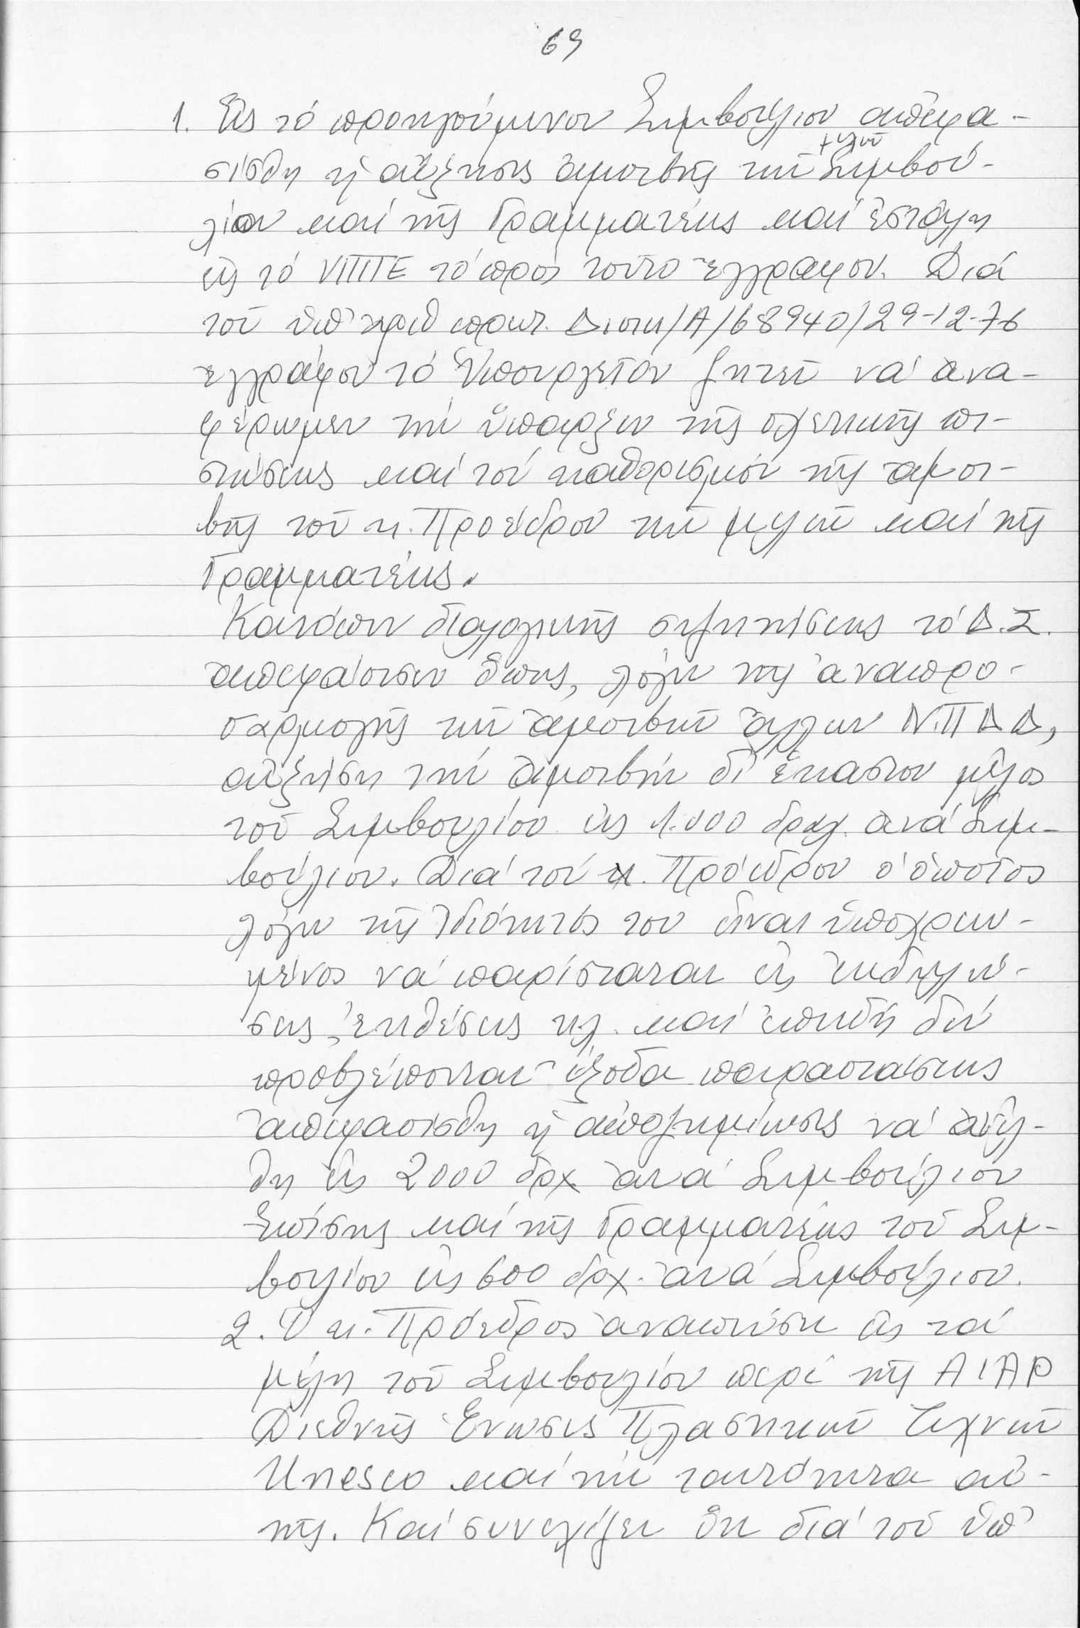 69
1. Εἰς τό προηγούμενον Συμβούλιον ἀπεφα-
σίσθη ἡ αὔξησις ἀμοιβῆς τῶν μελῶν Συμβου-
λίου καί τῆς Γραμματέως καί ἐστάλη
εἰς τό ΥΠΠΕ τό πρός τοῦτο ἔγγραφον. Διά
τοῦ ὑπ' ἀριθ πρωτ. Διοικ/Α/68940/29-12-76
ἐγγράφου τό Ὑπουργεῖον ζητεῖ νά ἀνα-
φέρωμεν τήν ὕπαρξιν τῆς σχετικῆς πι-
στώσεως καί τόν καθορισμόν τῆς ἀμοι-
βῆς τοῦ κ. Προέδρου τῶν μελῶν καί τῆς
Γραμματέως.
Κατόπιν διαλογικῆς συζητήσεως τό Δ.Σ.
ἀπεφάσισεν ὅπως, λόγῳ τῆς ἀναπρο-
σαρμογῆς τῶν ἀμοιβῶν ἄλλων Ν.Π Δ Δ,
αὐξήσῃ τήν ἀμοιβήν δι' ἕκαστον μέλος
τοῦ Συμβουλίου εἰς 1.000 δραχ. ἀνά Συμ-
βούλιον. Διά τόν κ. Πρόεδρον ὁ ὁποῖος
λόγῳ τῆς ἰδιότητός του εἶναι ὑποχρεω-
μένος νά παρίσταται εἰς ἐκδηλώ-
σεις, ἐκθέσεις κλ. καί ἐπειδή δέν
προβλέπονται ἔξοδα παραστάσεως
ἀπεφασίσθη ἡ ἀποζημίωσις νά ἀνέλ-
θη εἰς 2000 δρχ ἀνά Συμβούλιον
Ἐπίσης καί τῆς Γραμματέως τοῦ Συμ-
βουλίου εἰς 600 δρχ. ἀνά Συμβούλιον.
2. Ὁ κ. Πρόεδρος ἀναπτύσει εἰς τά
μέλη τοῦ Συμβουλίου περί τῆς AIAP
Διεθνής Ἕνωσις Πλαστικῶν Τεχνῶν
Unesco καί τήν ταυτότητα αὐ-
τῆς. Καί συνεχίζει ὅτι διά τοῦ ὑπ'